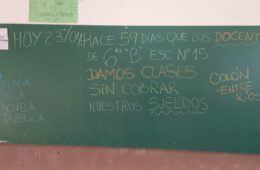 HOY 23/04 HACE 59 DÍAS QUE LOS DOCENTES
DE 6tos "B" ESC Nº 15
DAMOS CLASES
SIN COBRAR
NUESTROS SUELDOS
COLÓN
-ENTRE
RÍOS-
ESCUELA
PÚBLICA